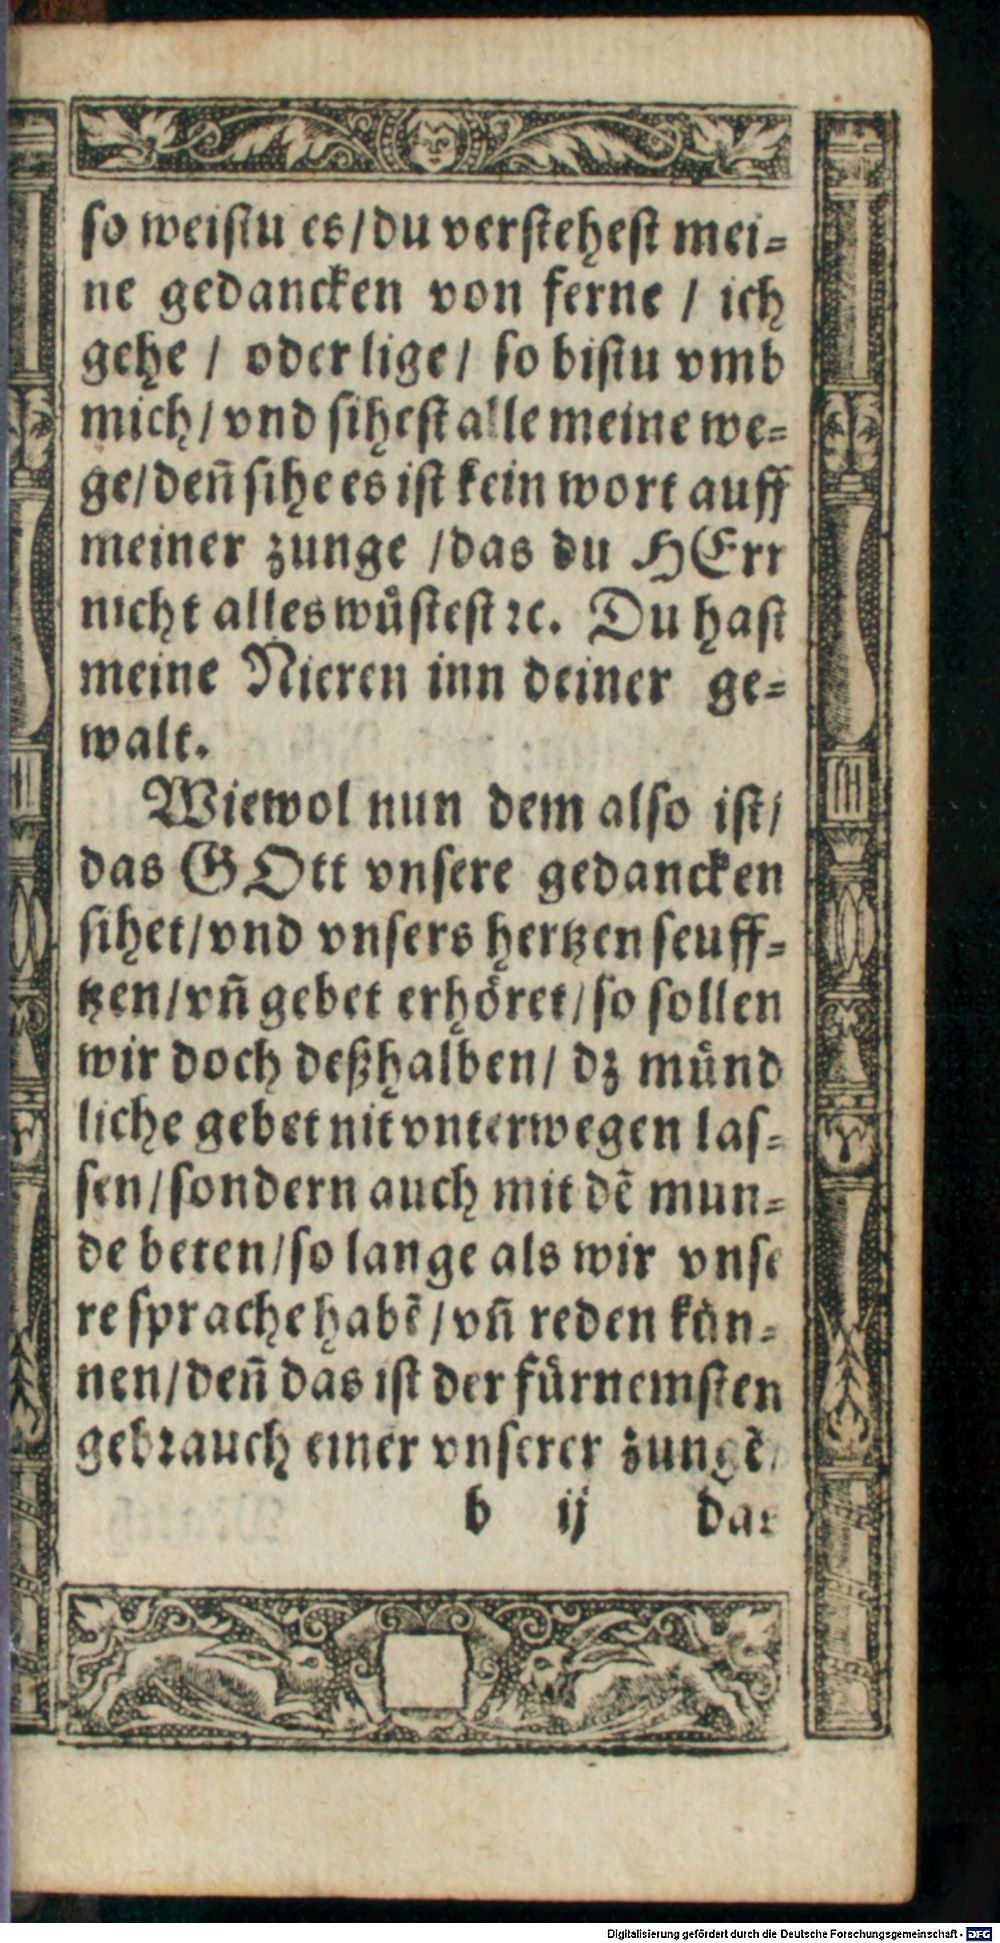 so weistu es/du verstehest mei=
ne gedancken von ferne / ich
gehe / oder lige/ so bistu vmb
mich/vnd sihest alle meine we=
ge/deñ sihe es ist kein wort auff
meiner zunge /das du HErr
nicht alles wuͤstest ꝛc. Du hast
meine Nieren inn deiner ge=
walt.
Wiewol nun dem also ist/
das GOtt vnsere gedancken
sihet/vnd vnsers hertzen seuff=
tzen/vñ gebet erhoͤret/so sollen
wir doch deßhalben/ dz muͤnd
liche gebet nit vnterwegen las=
sen/sondern auch mit dẽ mun=
de beten/so lange als wir vnse
re sprache habẽ/vñ reden kuͤn=
nen/deñ das ist der fuͤrnemsten
gebrauch einer vnserer zungẽ/
b ij das
Digitalisierung gefördert durch die Deutsche Forschungsgemeinschaft - DFG